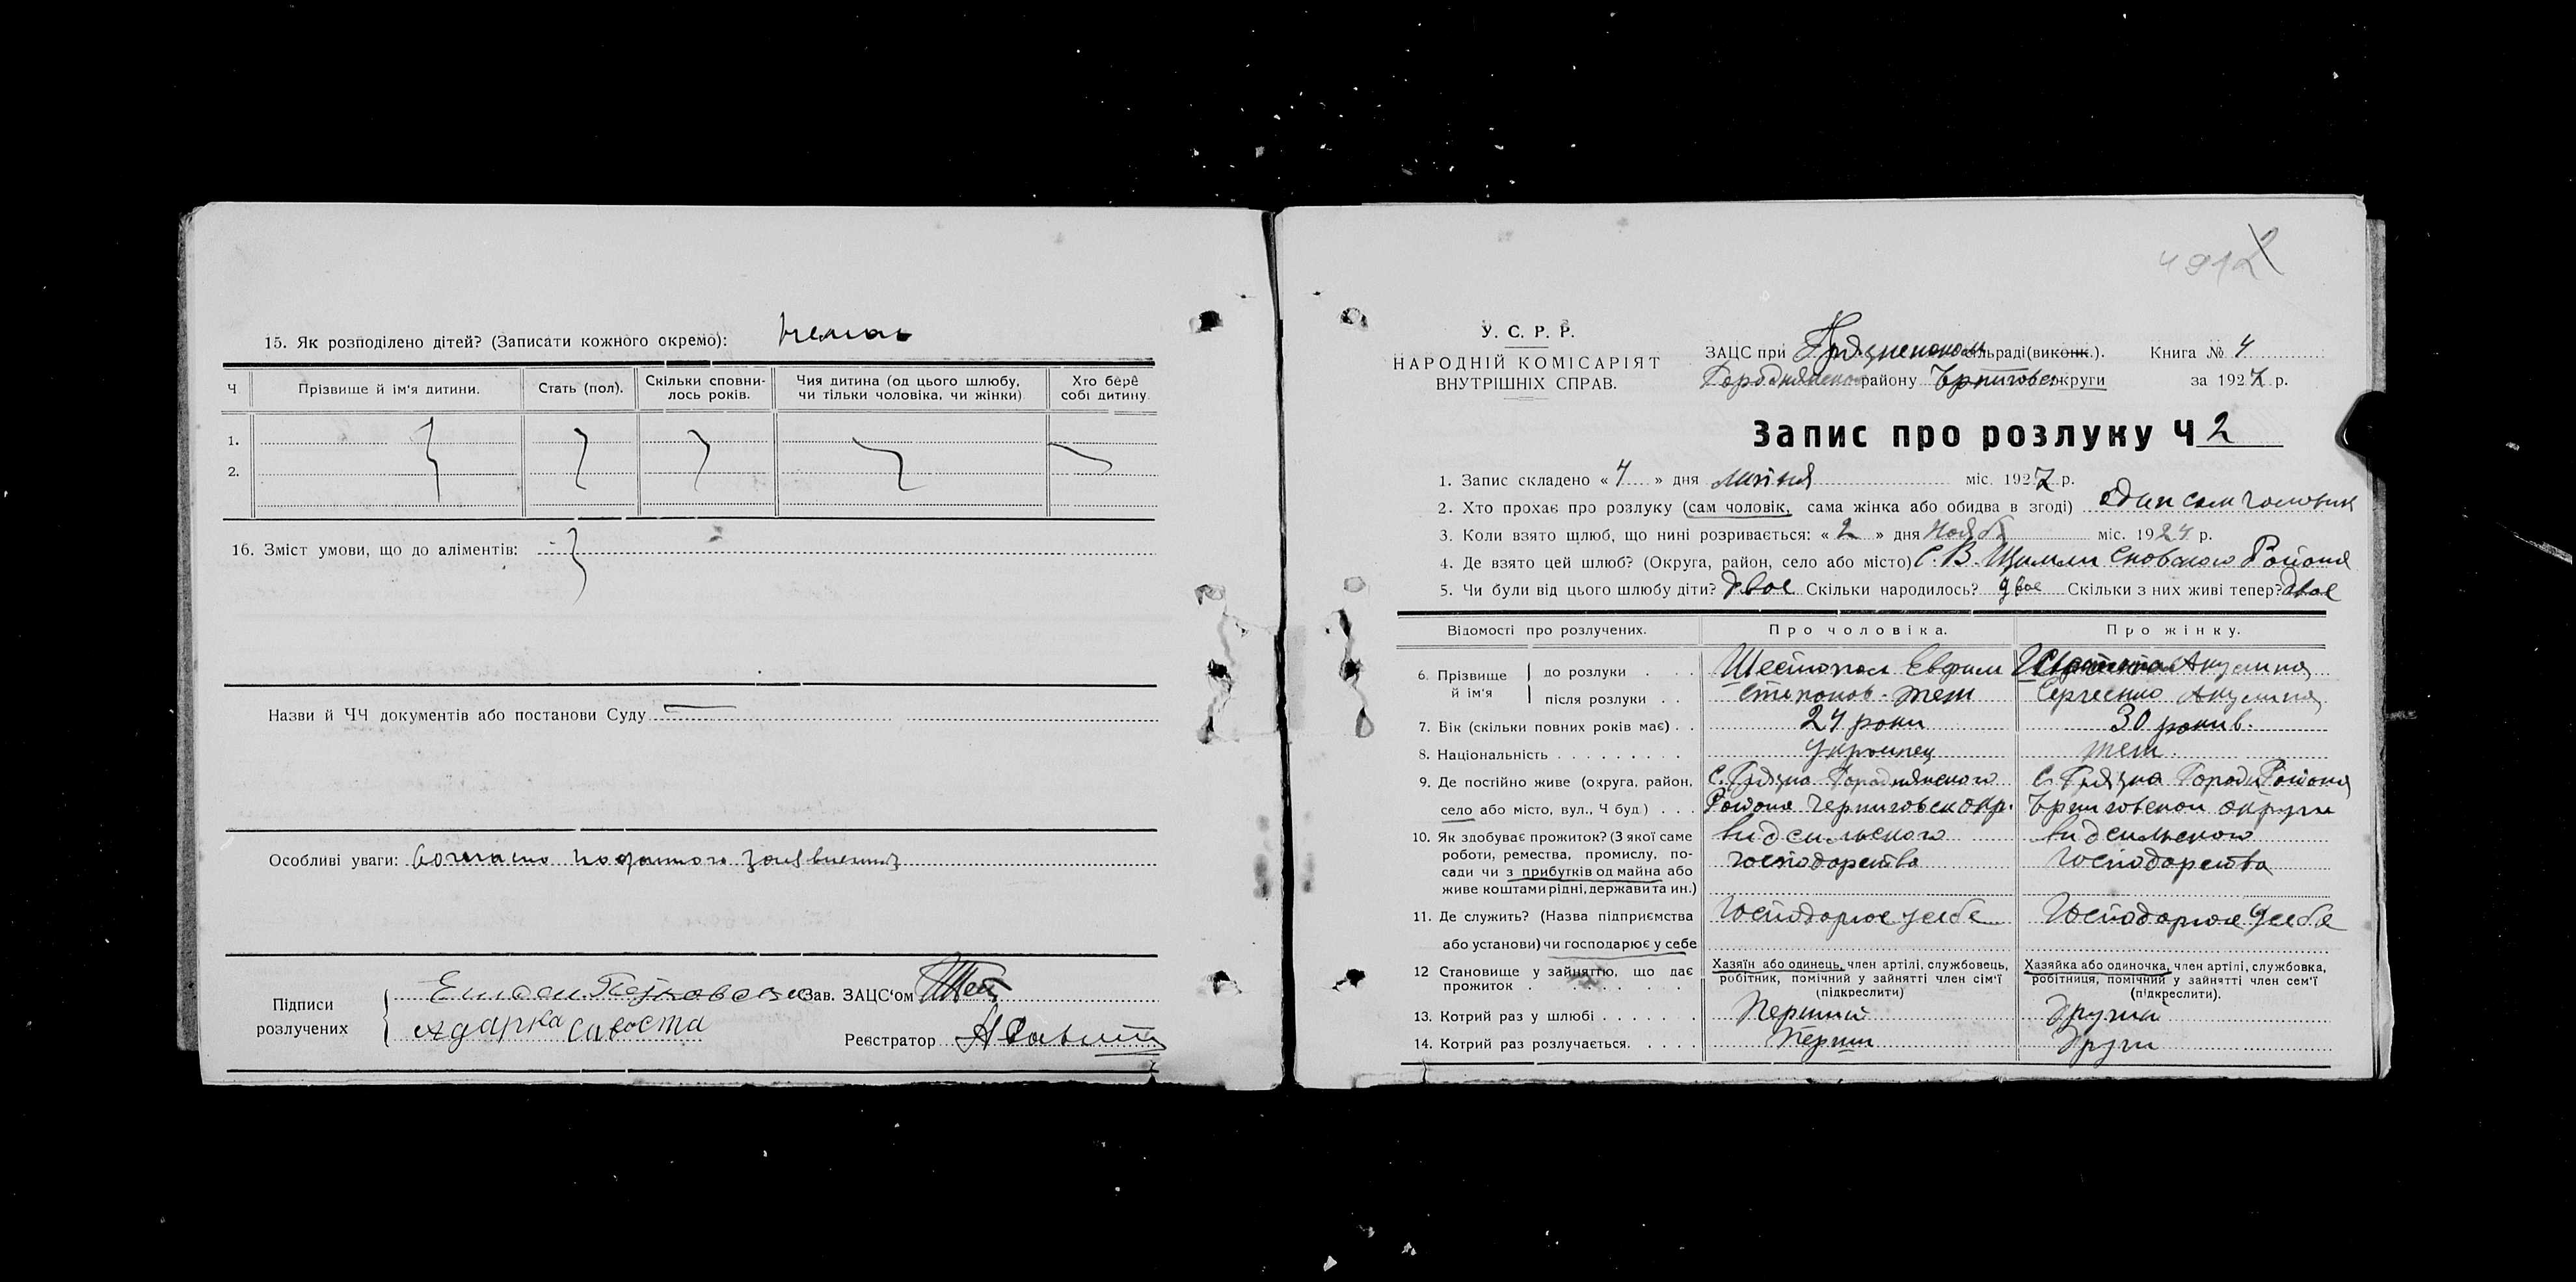 15. Як розподілено дітей? (Записати кожного окремо): немає
Ч Прізвище й ім'я дитини. Стать (пол). Скільки сповни- лось років. Чия дитина (од цього шлюбу, чи тільки чоловіка, чи жінки) Хто бере собі дитину
1.
2.
16. Зміст умови, що до аліментів:
Назви й ЧЧ документів або постанови Суду —
Особливі уваги:
Підписи розлучених
Зав. ЗАЦС'ом
Адарка Савоста
Реєстратор
4912
У. С. Р. Р.
НАРОДНІЙ КОМІСАРІЯТ
ВНУТРІШНІХ СПРАВ.
ЗАЦС при сільраді (виконк.). Книга № 4
району округи за 1927 р.
Запис про розлуку Ч 2
1. Запис складено « 4 » дня липня міс. 1927 р.
2. Хто прохає про розлуку (сам чоловік, сама жінка або обидва в згоді) один сам чоловик
3. Коли взято шлюб, що нині розривається: « 2 » дня Нояб міс. 1924 р.
4. Де взято цей шлюб? (Округа, район, село або місто) С. В. Щимли Сновского Района
5. Чи були від цього шлюбу діти? двое Скільки народилось? двое Скільки з них живі тепер? двое
Відомості про розлучених. Про чоловіка. Про жінку.
6. Прізвище й ім'я до розлуки Шестопал Евфим Акулина
після розлуки Степанов - теж Сергеенко Акулина
7. Вік (скільки повних років має) 24 роки 30 рокив.
8. Національність Украинец теж.
9. Де постійно живе (округа, район, С. Грязна Городнянского С. Грязна Городн Района
село або місто, вул., Ч буд) Района Черниговск окр. Чрниговской округи
10. Як здобуває прожиток? (З якої саме видсильского видсильского
роботи, ремества, промислу, по- господарства господарства
сади чи з прибутків од майна або
живе коштами рідні, держави та ин.)
11. Де служить? (Назва підприємства Господарює у себе Господарює у себе
або установи) чи господарює у себе
12 Становище у зайняттю, що дає прожиток Хазяїн або одинець, член артілі, службовець, робітник, помічний у зайнятті член сім'ї (підкреслити) Хазяйка або одиночка, член артілі, службовка, робітниця, помічний у зайнятті член сем'ї (підкреслити).
13. Котрий раз у шлюбі Перший Другий
14. Котрий раз розлучається. Перши Други